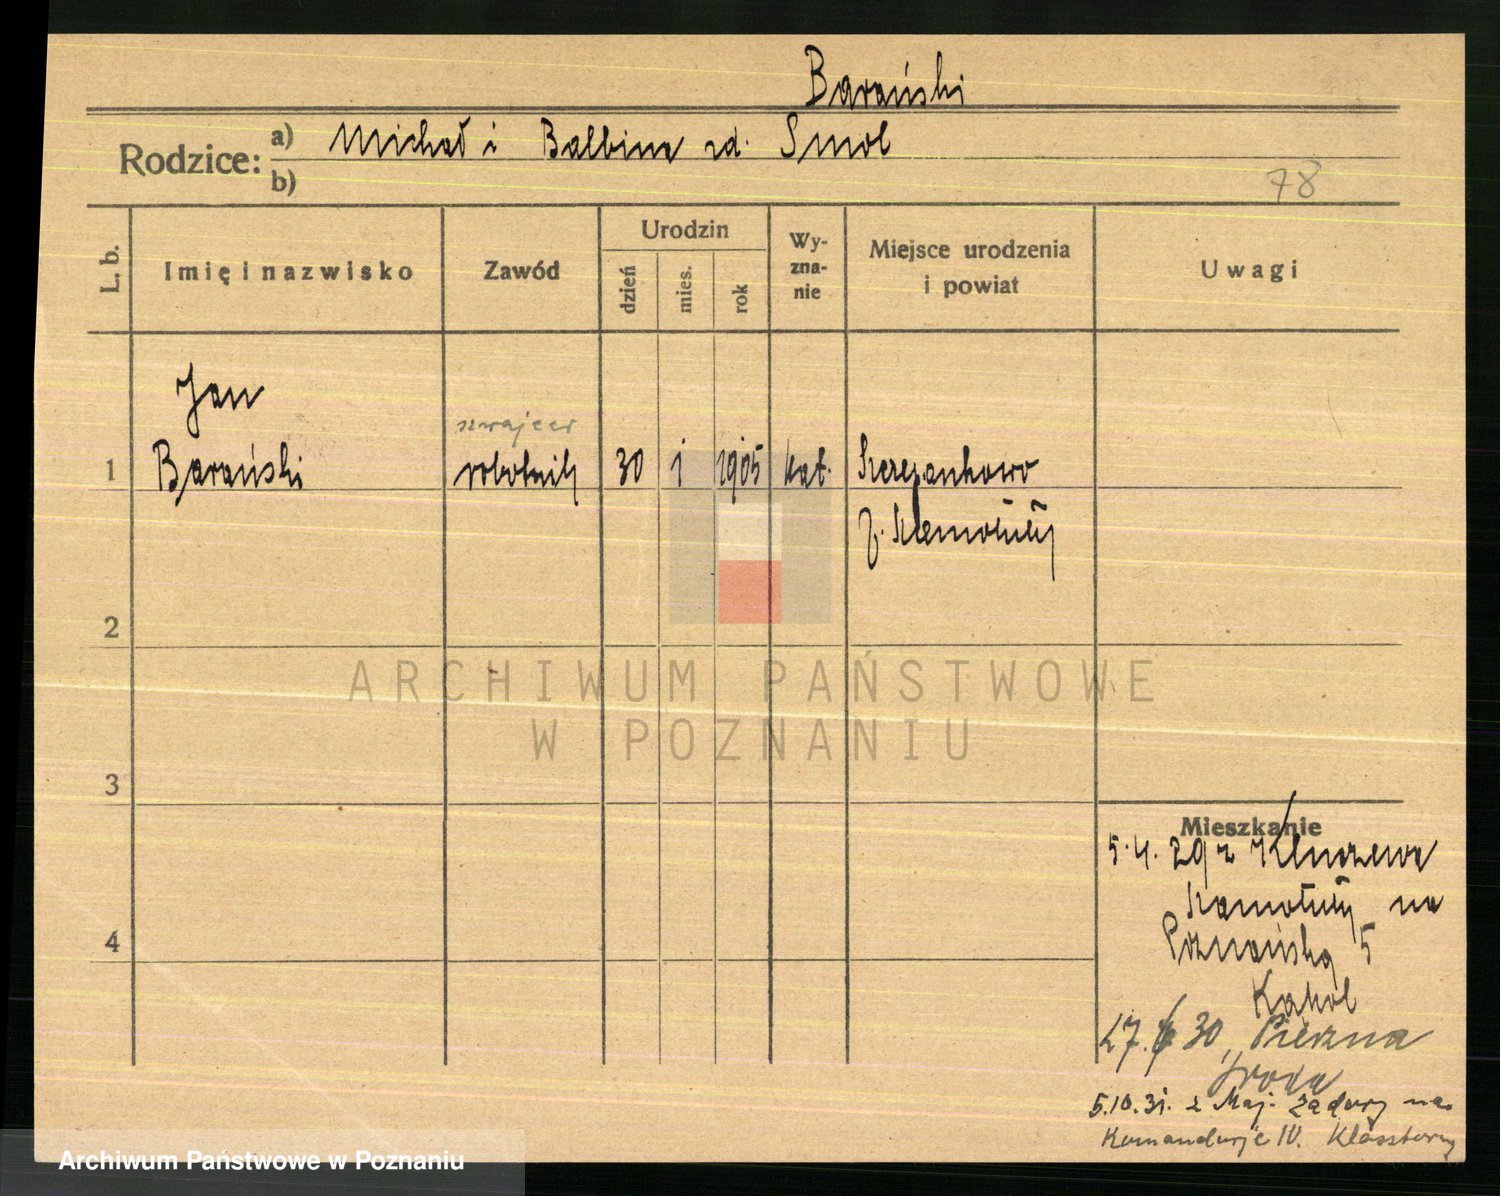 Barański
Rodzice: a) Michał i Balbina zd. Smol
b)
78
L. b.
Imię i nazwisko
Zawód
Urodzin
dzień
mies.
rok
Wy-
zna-
nie
Miejsce urodzenia
i powiat
Uwagi
Jan
szwajcer
1 Barański robotnik 30 1 1905 kat. Szczepankowo
p. Szamotuły
2
3
4
ARCHIWUM PAŃSTWOWE
W POZNANIU
Mieszkanie
5.4. 29 z
Szamotuły na
Poznańską 5
Kąkol
27. 30
Środa
5.10.31. z Maj. na
Komandorje IV.
Archiwum Państwowe w Poznaniu